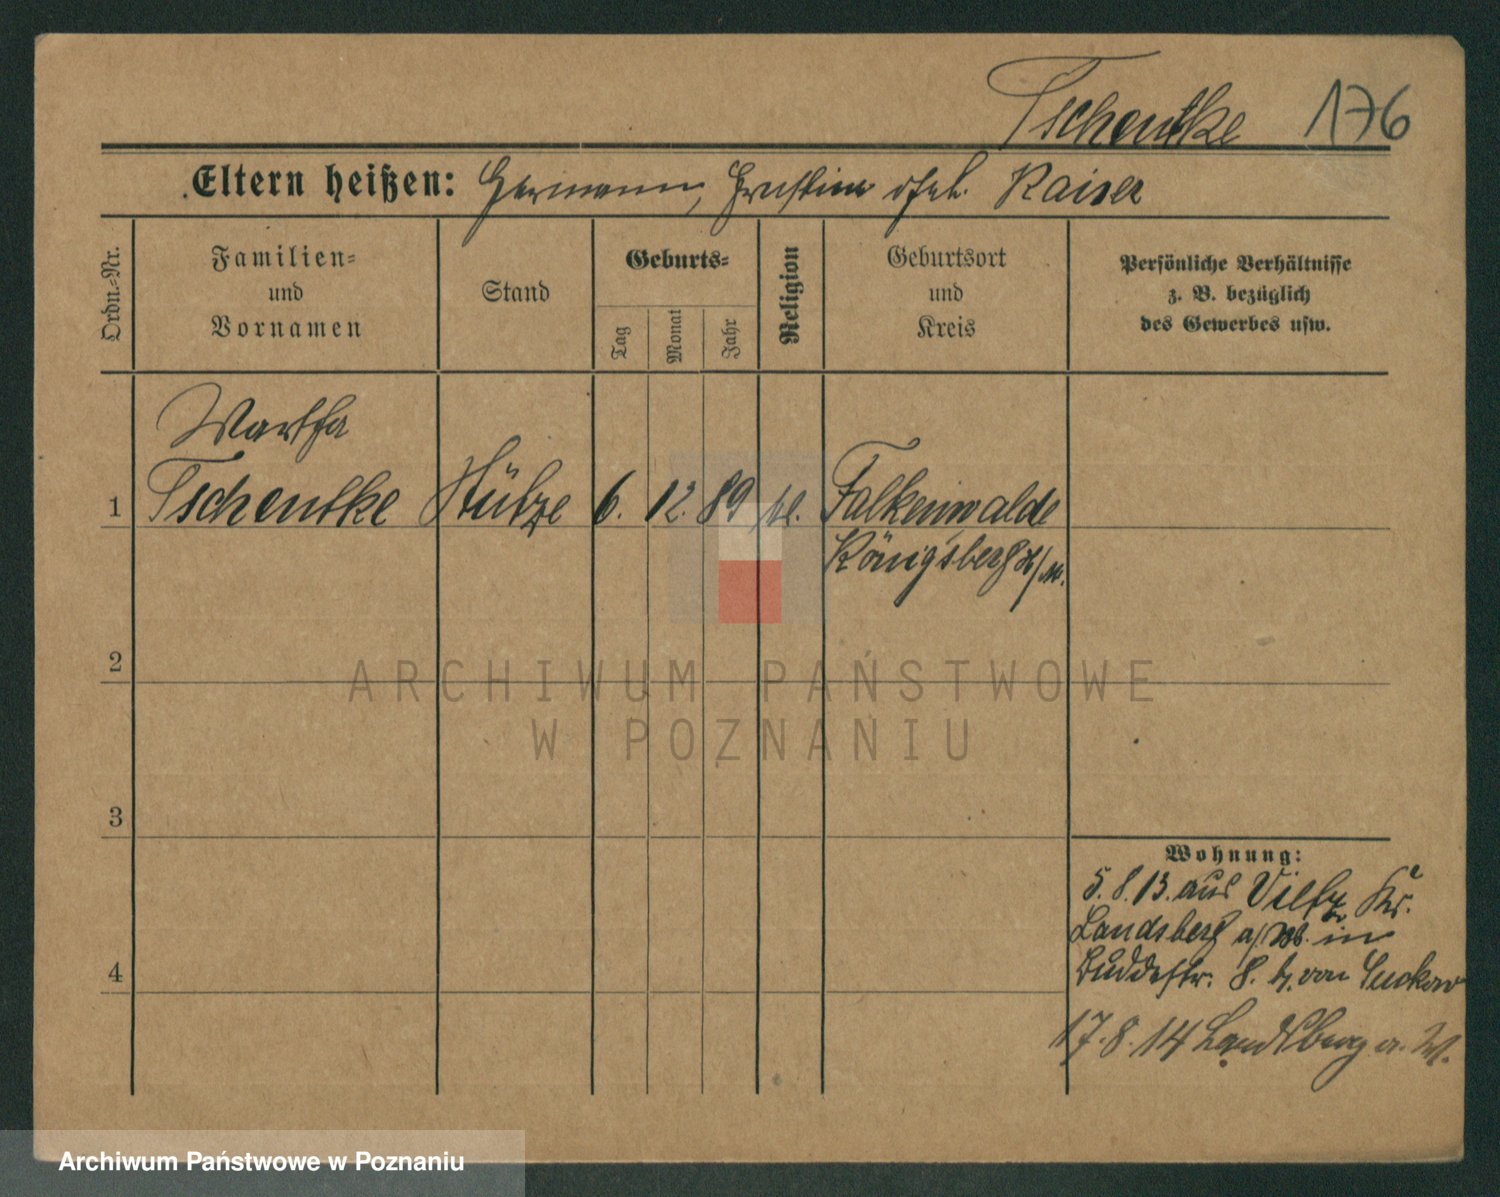 Tschentke 176
Eltern heißen: Hermann, Ernstine geb. Kaiser
Ordn.-Nr.
Familien-
und
Vornamen
Stand
Geburts-
Tag
Monat
Jahr
Religion
Geburtsort
und
Kreis
Persönliche Verhältnisse
z. B. bezüglich
des Gewerbes usw.
Martha
1 Tschentke Stütze 6. 12. 89 Falkenwalde
Königsberg N/M.
2
3
4
Wohnung:
5.8.13. aus Vietz Kr.
Landsberg a/W. in
Buddestr. 8. b. von Suckow
17.8.14 Landsberg a. W.
ARCHIWUM PAŃSTWOWE
W POZNANIU
Archiwum Państwowe w Poznaniu